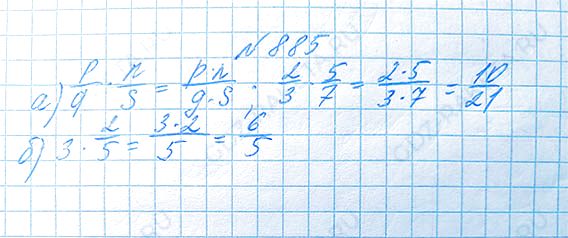 № 885
а) p/q · r/s = p·r/q·s; 2/3 · 5/7 = 2·5/3·7 = 10/21
б) 3 · 2/5 = 3·2/5 = 6/5